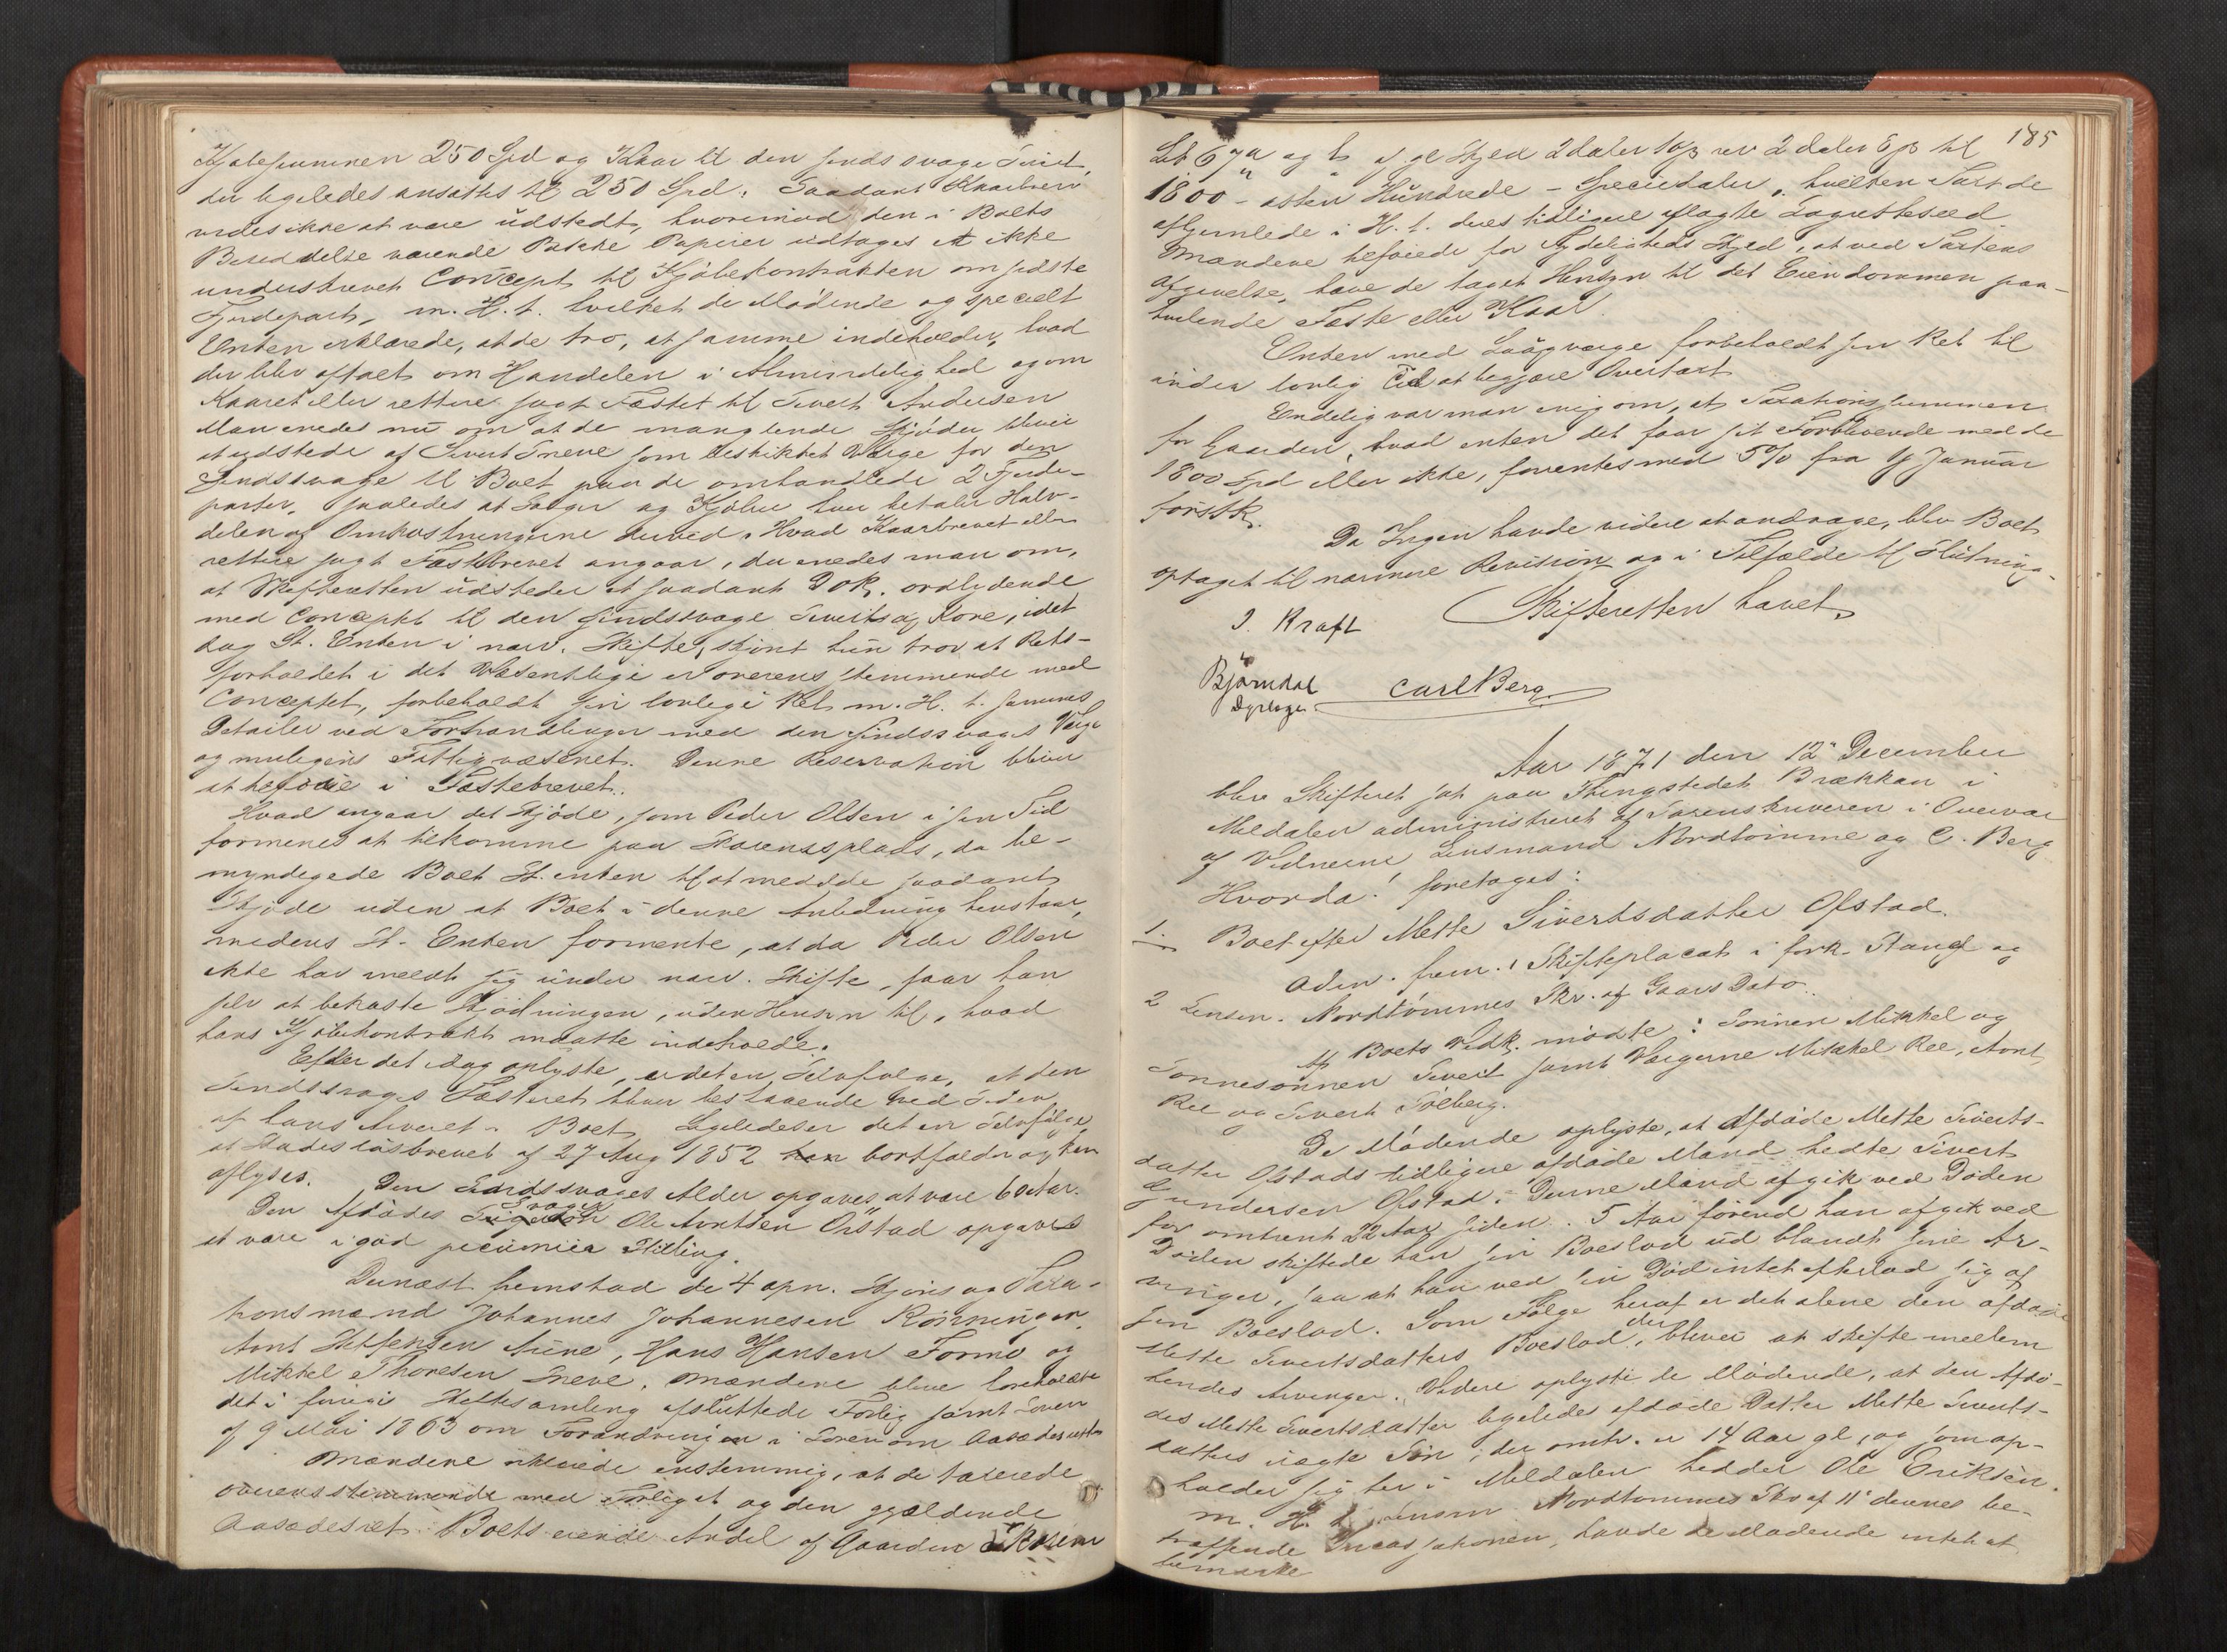 Kjøbesummen 250 Spd og Kaar til den sindssvage Sivert,
der ligeledes ansattes til 250 Spd. Saadant Kaarbrev
vides ikke at være udstedt, hvorimod den i Boets
Bereddelse værende Pakke Papirer udtoges et ikke
underskrevet Concept til Kjøbekontrakten om sidste
Fjerdepart, m. H. t. hvilket de Mødende og specielt
Enken erklærede, at de tro, at samme indeholder, hvad
der blev aftalt om Handelen i Almindelighed og om
Kaaret eller rettere sagt Føstet til Sivert Andersen
Man enedes nu om at de manglende Skjøder bliver
at udstede af Sivert Sneve som beskikket Værge for den
Sindssvage til Boet paa de omhandlede 2 Fjerde-
parter, saaledes at Sælger og Kjøber hver betaler Halv-
delen af Omkostningerne derved. Hvad Kaarbrevet eller
rettere sagt Føstebrevet angaar, da enedes man om,
at Skifteretten udsteder et saadant Dok. ordlydende
med Conceptet til den sindssvage Sivert og Kone, idet
dog St. Enken i nærv. Skifte, skjønt hun tror at Rets-
forholdet i det Væsentlige er overensstemmende med
Conceptet, forbeholdt sin lovlige Ret m. H. t. sammes
Detailer ved Forhandlinger med den sindssvages Værge
og muligens Fattigvæsenet. Denne Reservation bliver
at tilføie i Føstebrevet.
Hvad angaar det Skjøde, som Peder Olsen i sin Tid
formenes at tilkomme paa Harensplads, da be-
myndigede Boet St. enken til at meddele saadant
Skjøde uden at Boet i denne Anledning henstaar,
medens St. Enken formente, at da Peder Olsen
ikke har meldt sig under nærv. Skifte, faar han
selv at bekoste Skjødningen, uden Hensyn til, hvad
hans Kjøbekontrakt maatte indeholde.
Efter det idag oplyste, er det en Selvfølge, at den
Sindssvages Føsteret bliver bestaaende ved Siden
af hans Arveret i Boet. Ligeledes er det en Selvfølge,
at Skadesløsbrevet af 27 Aug 1852 bortfalder og kan
aflyses. Den Sindssvages Alder opgaves at være 60 Aar.
Den Afdødes Svoger Ole Arntsen Ørstad opgaves
at være i god pecuniær Stilling.
Dernæst fremstod de 4 opn. Skjøns og Taxa-
tionsmænd Johannes Johannesen Rønningen,
Arnt Steffensen Aune, Hans Hansen Formo og
Mikkel Thoresen Sneve. Mændene bleve foreholdte
det i forrige Skiftesamling afsluttede Forlig samt Loven
af 9 Mai 1863 om Forandringer i Loven om Aasædesretten
Mændene erklærede enstemmig, at de taxerede
overensstemmende med Forliget og den gjældende
Aasædesret Boets eiende Andel af Gaarden
185
Lb 67 a og b af gl Skyld 2 daler 10 ß ny 2 daler 6 ß til
1800 – atten Hundrede – Speciedaler, hvilken Taxt de
afhjemlede i H. t. deres tidligere aflagte Lagrettesed
Mændene tilføiede for Tydeligheds Skyld, at ved Taxtens
Afgivelse, have de taget Hensyn til det Eiendommen paa-
hvilende Føste eller Kaar.
Enken med Laugværge forbeholdt sin Ret til
inden lovlig Tid at begjære Overtaxt.
Endelig var man enig om, at Taxationssummen
for Gaarden, hvad enten det faar sit Forblivende med de
1800 Spd eller ikke, forrentes med 5 % fra 1 Januar
førstk.
Da Ingen havde videre at andrage, blev Boet
optaget til nærmere Revision og i Tilfælde til Slutning.
Skifteretten hævet.
J. Kraft
Bjørndal
Carl Berg
Aar 1871 den 12te December
blev Skifteret sat paa Thingstedet Brækkan i
Meldalen administreret af Sorenskriveren i Overvær
af Vidnerne Lensmand Nordtømme og C. Berg
Hvorda! foretoges:
1. Boet efter Mette Sivertsdatter Ofstad.
Adm. frem. 1 Skifteplacat i fork. Stand og
2 Lensm. Nordtømmes Skr. af Gaars Dato.
Af Boets Vedk. mødte: Sønnen Mikkel og
Sønnesønnen Sivert samt Værgerne Mikkel Ree, Arnt
Ree og Sivert Solberg.
De Mødende oplyste, at Afdøde Mette Siverts-
datter Ofstads tidligere afdøde Mand hedte Sivert
Gundersen Ofstad. Denne Mand afgik ved Døden
for omtrent 22 Aar siden. 5 Aar førend han afgik ved
Døden skiftede han sin Boeslod ud blandt sine Ar-
vinger, saa at han ved sin Død intet efterlod sig af
sin Boeslod. Som Følge heraf er det alene den afdøde
Mette Sivertsdatters Boeslod, der bliver at skifte mellem
hendes Arvinger. Videre oplyste de Mødende, at den Afdø-
des Mette Sivertsdatter ligelede afdøde Datter Mette Siverts-
datters uægte Søn, der omtr. er 14 Aar gl., og som op-
holder sig her i Meldalen hedder Ole Eriksen.
m. H. t. Lensm Nordtømmes Skr af 11te dennes be-
træffende Incassationen, havde de Mødende intet at
bemærke